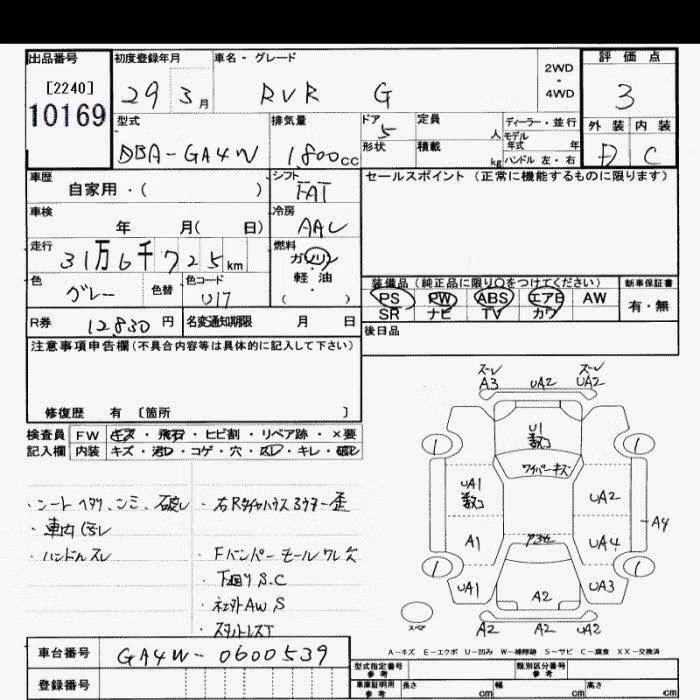 出品番号 初度登録年月 車名・グレード 2WD・4WD 評価点
[2240] 29 3月 RVR G 3
10169 型式 排気量 ドア 5 定員 人 ディーラー・並行 外装 内装
DBA-GA4W 1,800cc 形状 積載 kg モデル年式 年 ハンドル 左・右 D C
車歴 シフト セールスポイント(正常に機能するものに限ります)
自家用・( ) FAT
車検 冷房
年 月( 日) AAC
走行 燃料
31万6千725km ガソリン・軽油
色 色替 色コード ( ・ ) 装備品(純正品に限り○をつけてください) 新車保証書
グレー U17 PS PW ABS エアB AW 有・無
SR ナビ TV カワ
R券 12830円 名変通知期限 月 日 後日品
注意事項申告欄(不具合内容等は具体的に記入して下さい)
修復歴 有 〔箇所 〕
検査員 FW キズ・飛石・ヒビ割・リペア跡・×要
記入欄 内装 キズ・汚レ・コゲ・穴・スレ・キレ・破レ
・シートヘタリ、シミ、破レ ・右Rタイヤハウスカバー歪
・車内汚レ
・ハンドルスレ ・Fバンパーモールワレ欠
・下廻りS.C
・社外AW S
A3 UA2 UA2
U1
ワイパーキズ
UA1 UA2
A4
A1 UA4
UA1 A2 UA3
スペア A2 A2 UA2
A-キズ E-エクボ U-凹み W-補修跡 S-サビ C-腐食 XX-交換済
車台番号 GA4W-0600539
登録番号
型式指定番号 参考 類別区分番号 参考
車庫証明用 参考 長さ cm 幅 cm 高さ cm